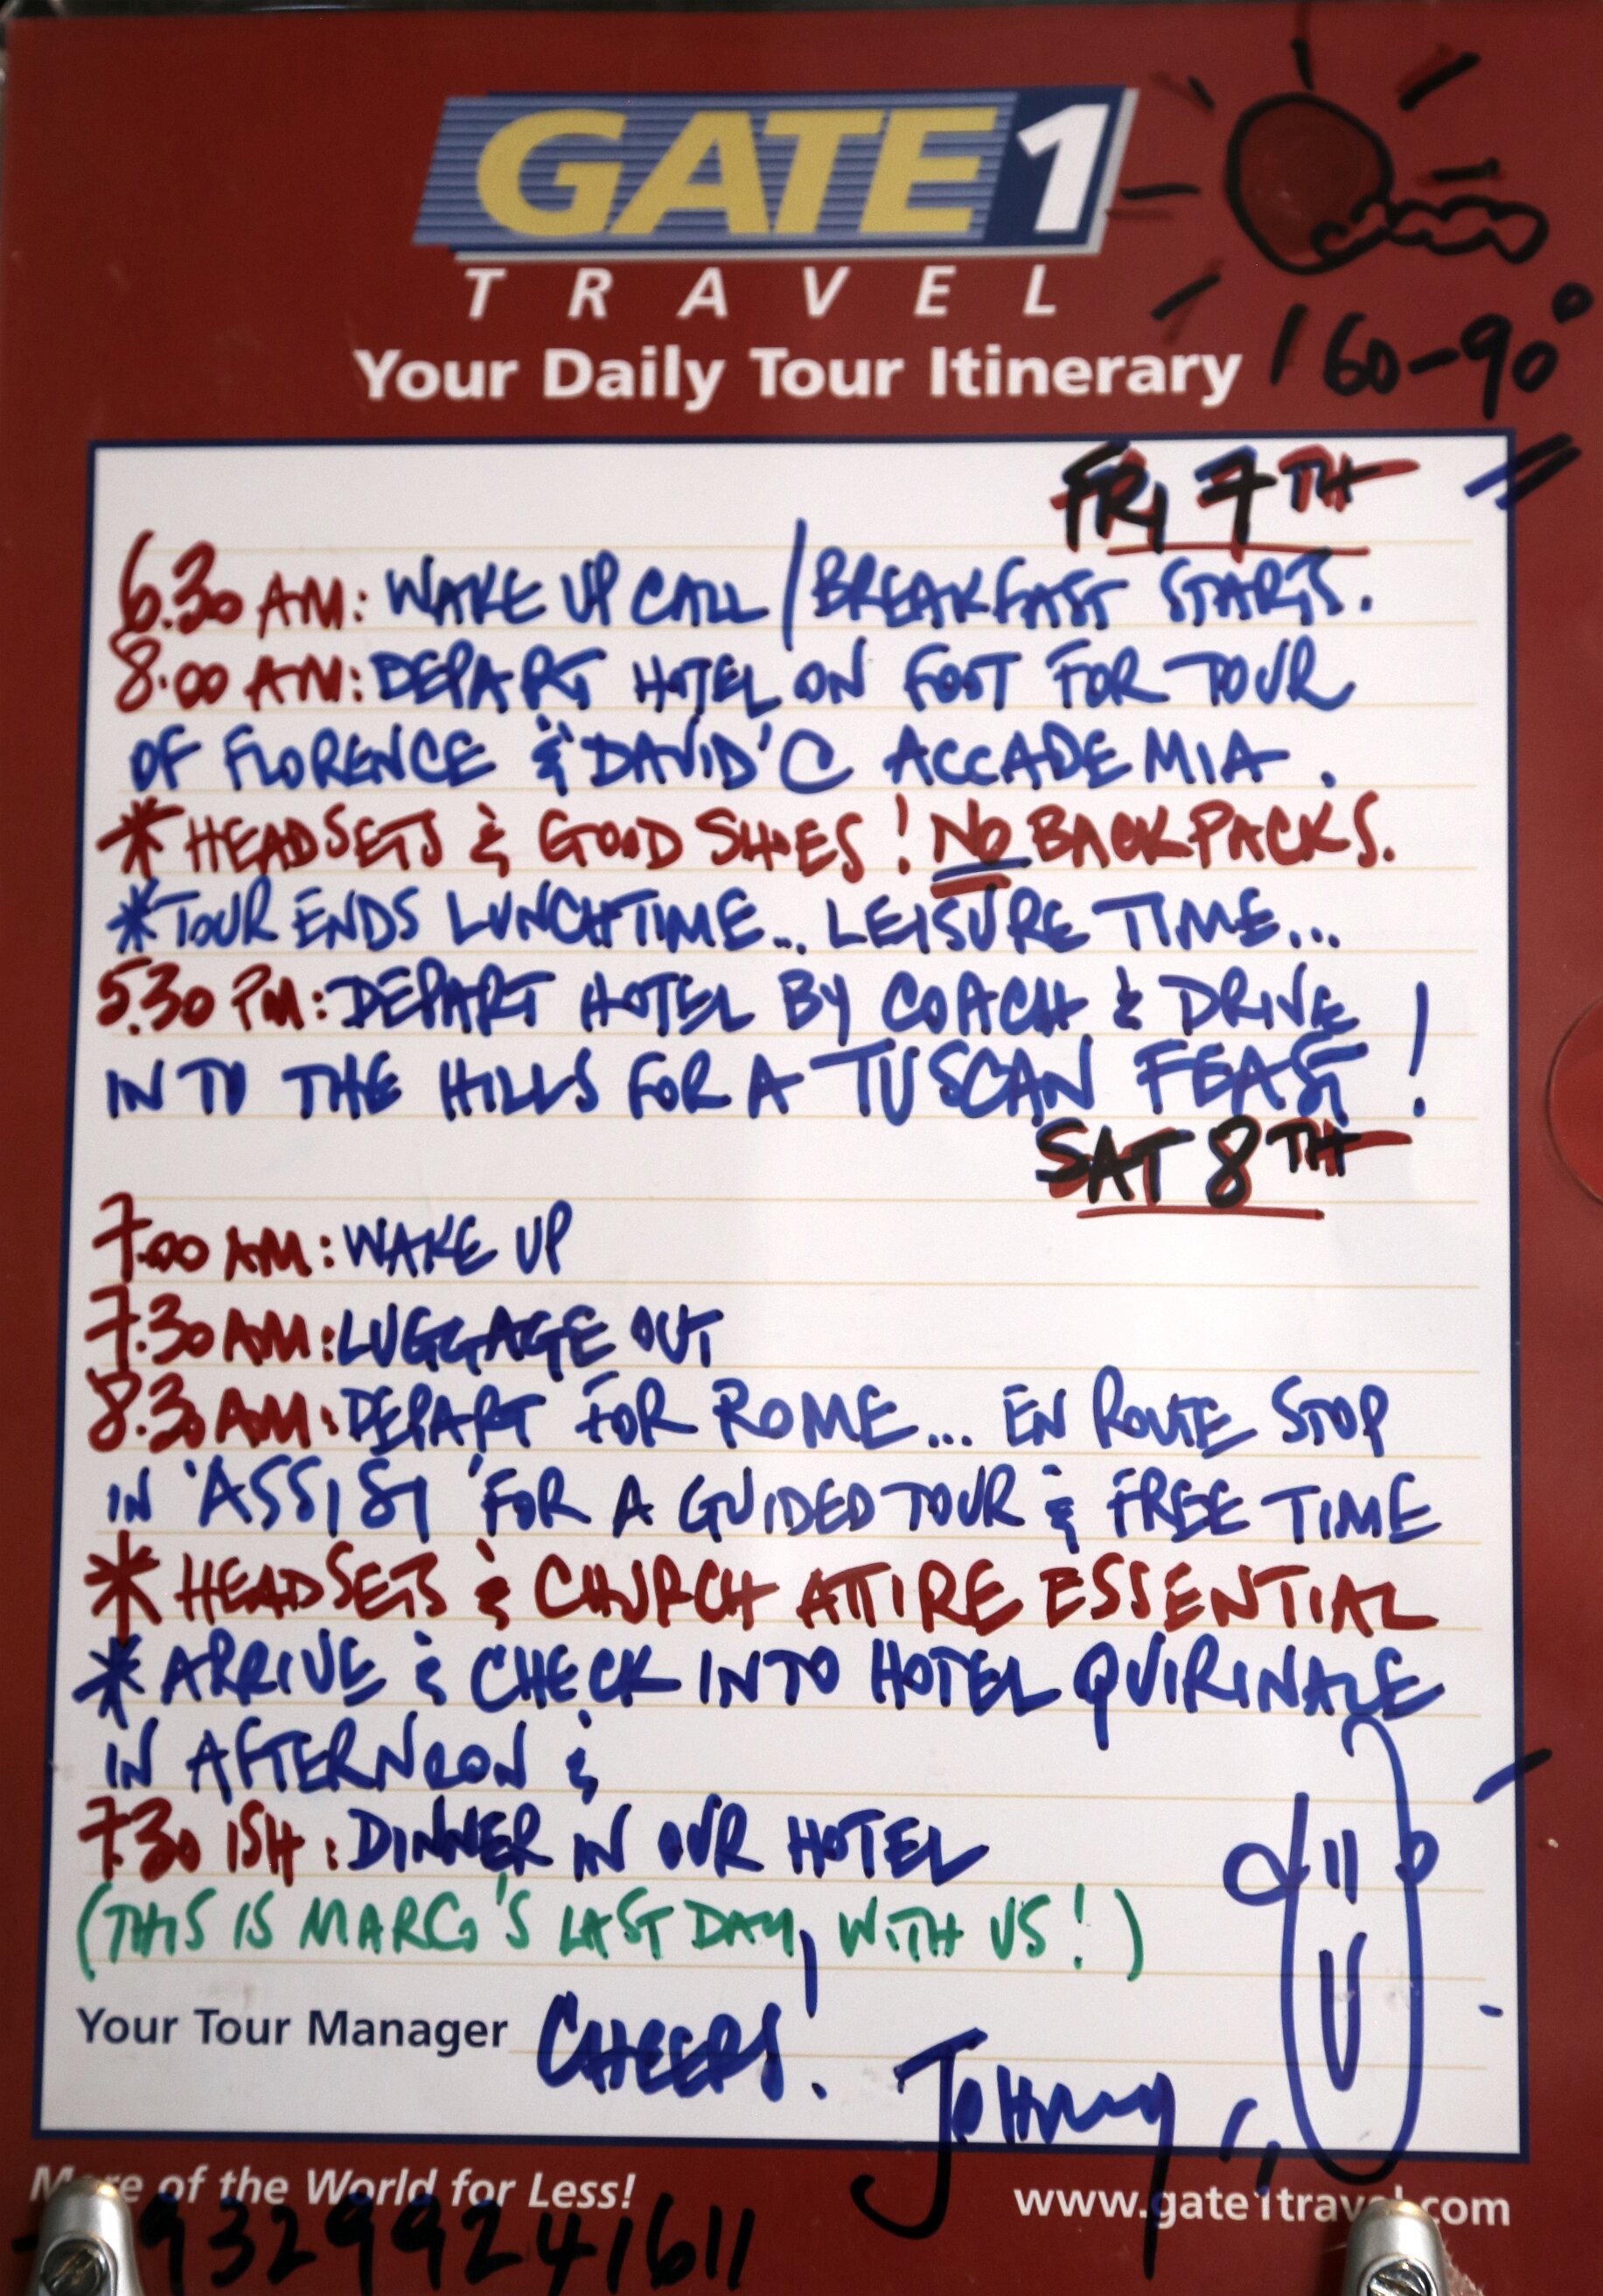 GATE 1
TRAVEL
Your Daily Tour Itinerary
60-90°
FRI 7TH
6.30 AM: WAKE UP CALL / BREAKFAST STARTS.
8.00 AM: DEPART HOTEL ON FOOT FOR TOUR
OF FLORENCE & 'DAVID' C ACCADEMIA.
* HEADSETS & GOOD SHOES! NO BACKPACKS.
* TOUR ENDS LUNCHTIME... LEISURE TIME...
5.30 PM: DEPART HOTEL BY COACH & DRIVE
INTO THE HILLS FOR A TUSCAN FEAST!
SAT 8TH
7.00 AM: WAKE UP
7.30 AM: LUGGAGE OUT
8.30 AM: DEPART FOR ROME... EN ROUTE STOP
IN 'ASSISI' FOR A GUIDED TOUR & FREE TIME
* HEADSETS & CHURCH ATTIRE ESSENTIAL
* ARRIVE & CHECK INTO HOTEL QUIRINALE
IN AFTERNOON &
7.30 ISH: DINNER IN OUR HOTEL
(THIS IS MARCO'S LAST DAY, WITH US!)
Your Tour Manager CHEERS! JOHNNY
More of the World for Less!
www.gate1travel.com
93299241611